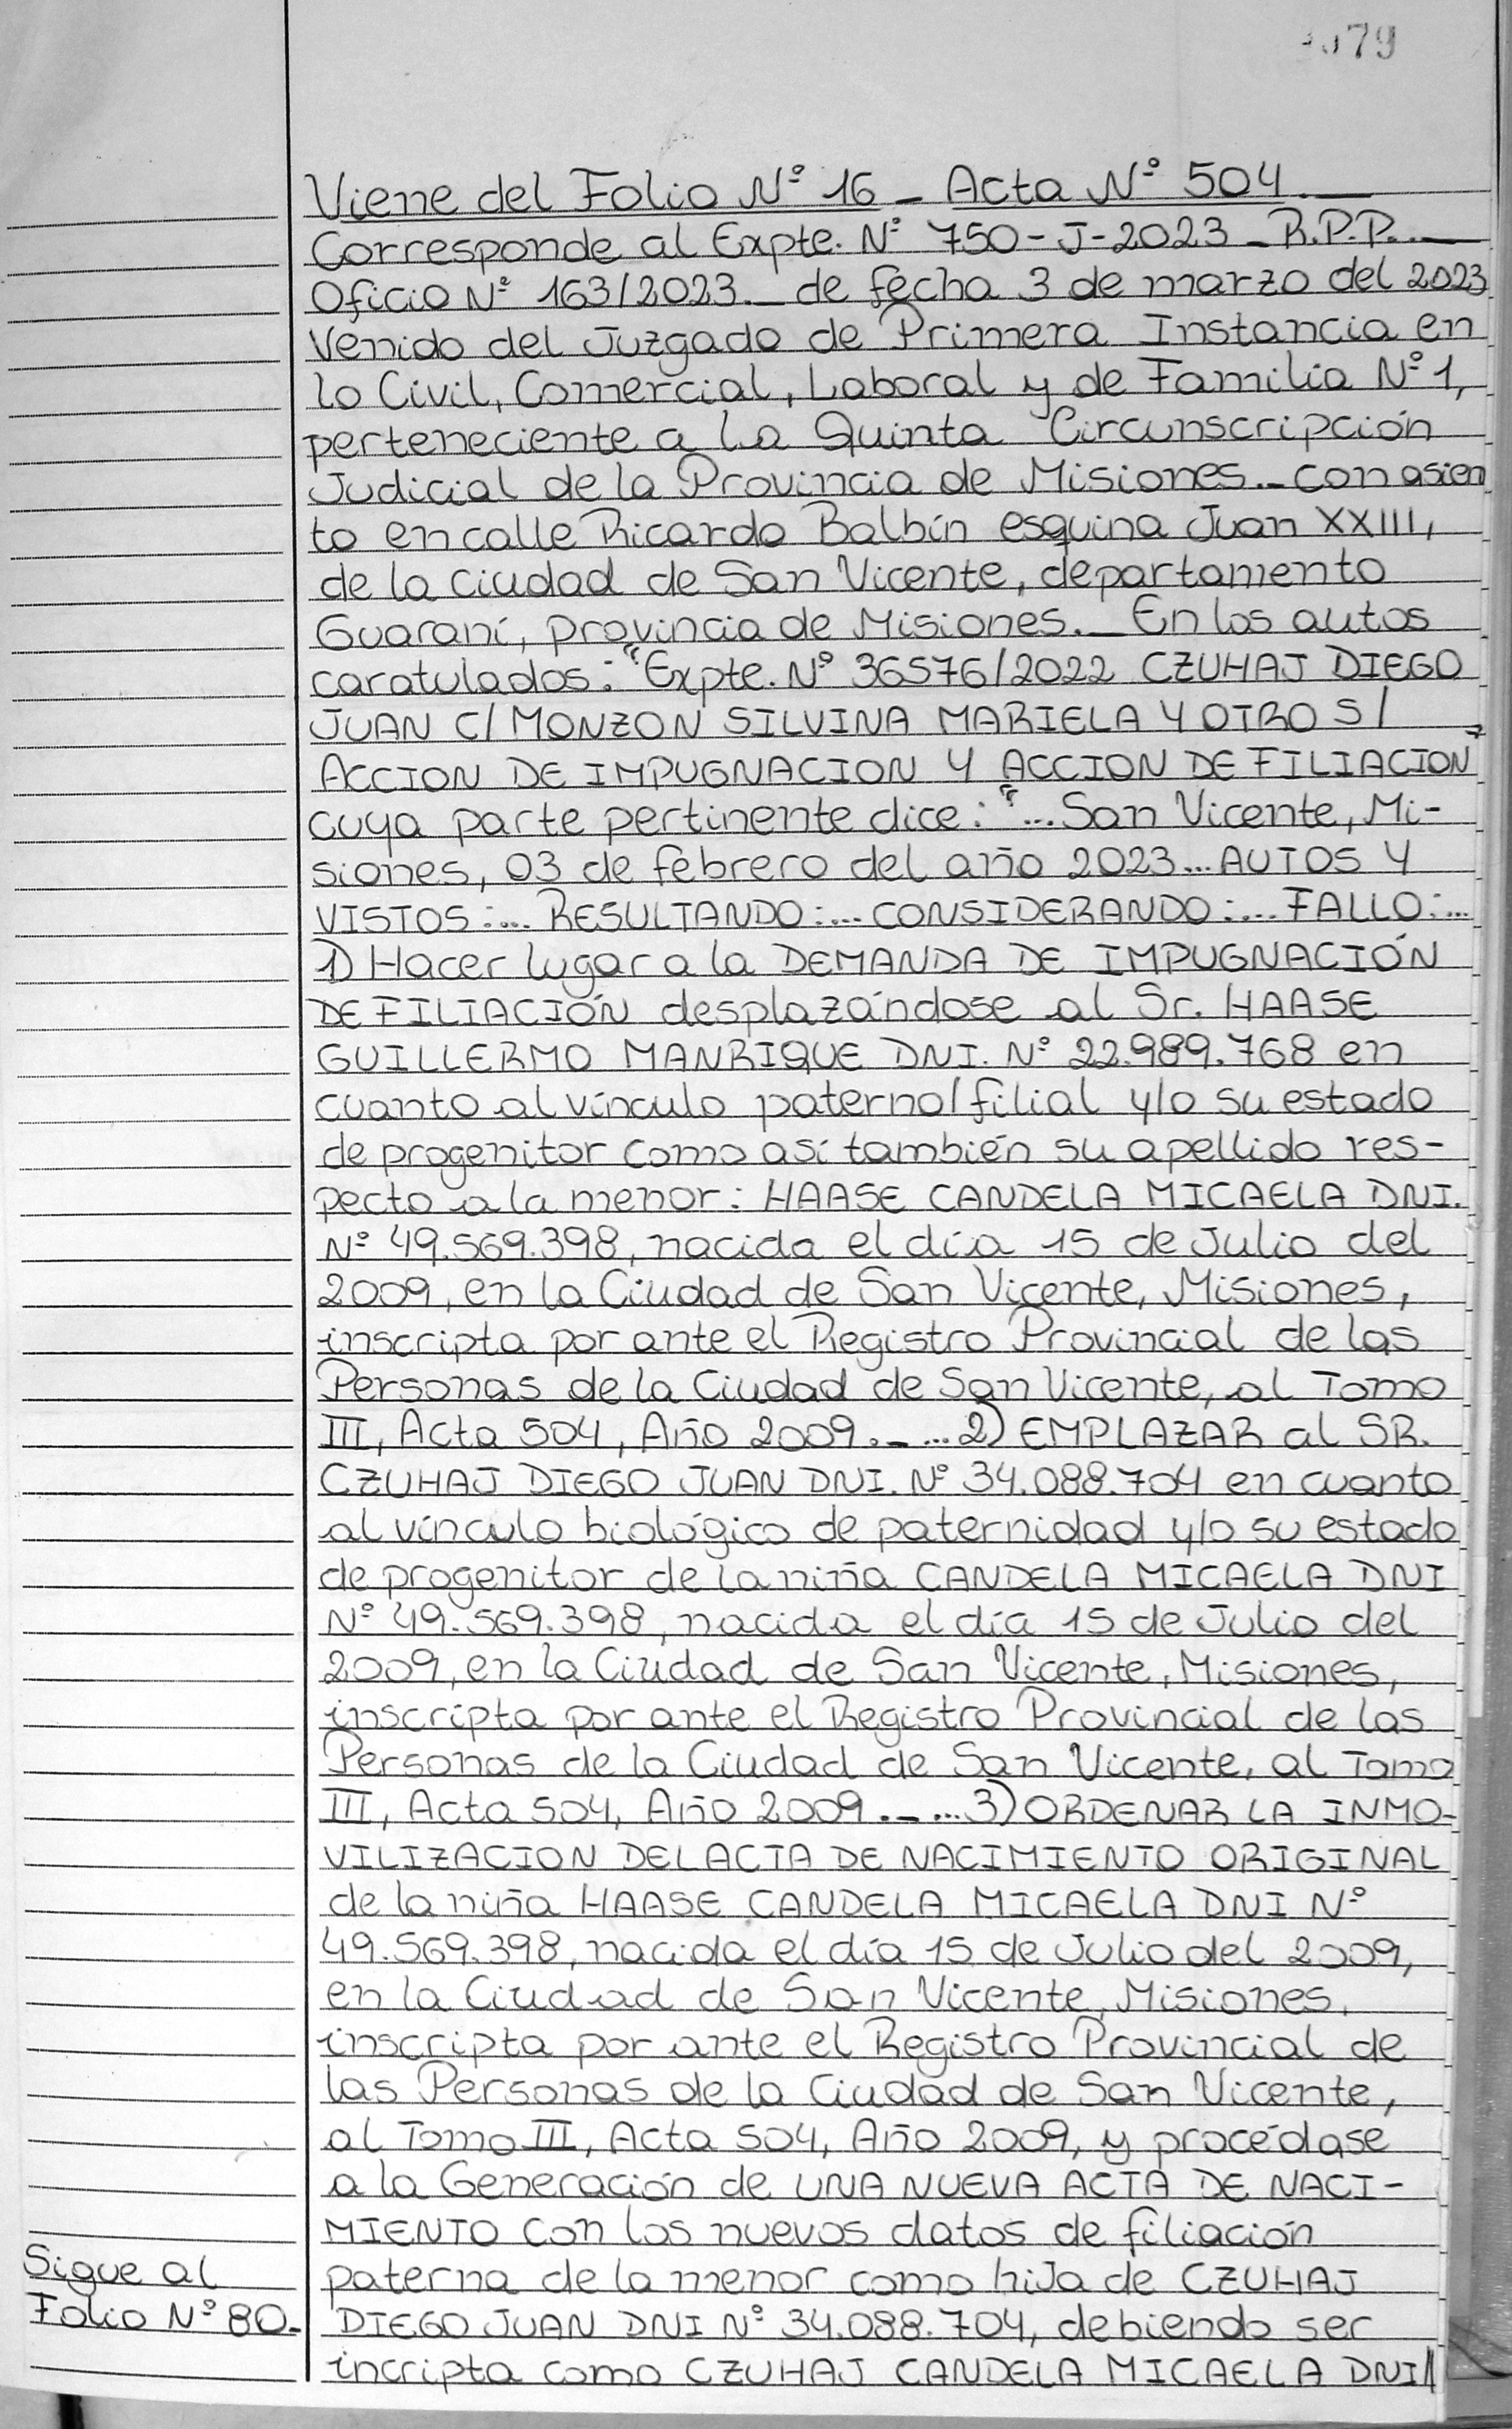 79
Viene del Folio Nº 16 - Acta Nº 504.
Corresponde al Expte. Nº 750-J-2023 - R.P.P.
Oficio Nº 163/2023.- de fecha 3 de marzo del 2023
Venido del Juzgado de Primera Instancia en
lo Civil, Comercial, Laboral y de Familia Nº 1,
perteneciente a La Quinta Circunscripción
Judicial de la Provincia de Misiones.- con asien
to en calle Ricardo Balbín esquina Juan XXIII,
de la ciudad de San Vicente, departamento
Guaraní, provincia de Misiones.- En los autos
caratulados: "Expte. Nº 36576/2022 CZUHAJ DIEGO
JUAN C/ MONZON SILVINA MARIELA Y OTRO S/
ACCION DE IMPUGNACION Y ACCION DE FILIACION"
cuya parte pertinente dice: "... San Vicente, Mi-
siones, 03 de febrero del año 2023... AUTOS Y
VISTOS:... RESULTANDO:... CONSIDERANDO:... FALLO:...
1) Hacer lugar a la DEMANDA DE IMPUGNACIÓN
DE FILIACIÓN desplazándose al Sr. HAASE
GUILLERMO MANRIQUE DNI. Nº 22.989.768 en
cuanto al vínculo paterno/filial y/o su estado
de progenitor como así también su apellido res-
pecto a la menor: HAASE CANDELA MICAELA DNI.
Nº 49.569.398, nacida el día 15 de Julio del
2009, en la Ciudad de San Vicente, Misiones,
inscripta por ante el Registro Provincial de las
Personas de la Ciudad de San Vicente, al Tomo
III, Acta 504, Año 2009.- ...2) EMPLAZAR al SR.
CZUHAJ DIEGO JUAN DNI. Nº 34.088.704 en cuanto
al vínculo biológico de paternidad y/o su estado
de progenitor de la niña CANDELA MICAELA DNI
Nº 49.569.398, nacida el día 15 de Julio del
2009, en la Ciudad de San Vicente, Misiones,
inscripta por ante el Registro Provincial de las
Personas de la Ciudad de San Vicente, al Tomo
III, Acta 504, Año 2009.- ...3) ORDENAR LA INMO-
VILIZACION DEL ACTA DE NACIMIENTO ORIGINAL
de la niña HAASE CANDELA MICAELA DNI Nº
49.569.398, nacida el día 15 de Julio del 2009,
en la Ciudad de San Vicente, Misiones,
inscripta por ante el Registro Provincial de
las Personas de la Ciudad de San Vicente,
al Tomo III, Acta 504, Año 2009, y procédase
a la Generación de UNA NUEVA ACTA DE NACI-
MIENTO con los nuevos datos de filiación
paterna de la menor como hiJa de CZUHAJ
DIEGO JUAN DNI Nº 34.088.704, debiendo ser
incripta como CZUHAJ CANDELA MICAELA DNI//
Sigue al
Folio Nº 80.-